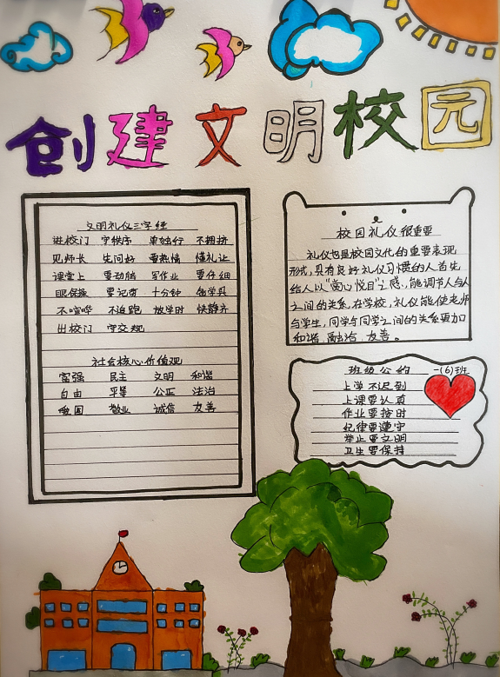 创建文明校园
文明礼仪三字经
进校门 守秩序 单独行 不拥挤
见师长 主问好 要热情 懂礼让
课堂上 要动脑 写作业 要仔细
眼保操 要记穷 十分钟 做学具
不喧哗 不追跑 放学时 快静齐
出校门 守交规
社会核心价值观
富强 民主 文明 和谐
自由 平等 公正 法治
爱国 敬业 诚信 友善
校园礼仪很重要
礼仪也是校园文化的重要表现
形式,具有良好礼仪习惯的人首先
给人以“赏心悦目”之感,能调节人与人
之间的关系,在学校,礼仪能使老师
与学生,同学与同学之间的关系更加
和谐 融洽 友善。
班级公约 一(6)班
上学不迟到
上课要认真
作业要按时
纪律要遵守
举止要文明
卫生要保持